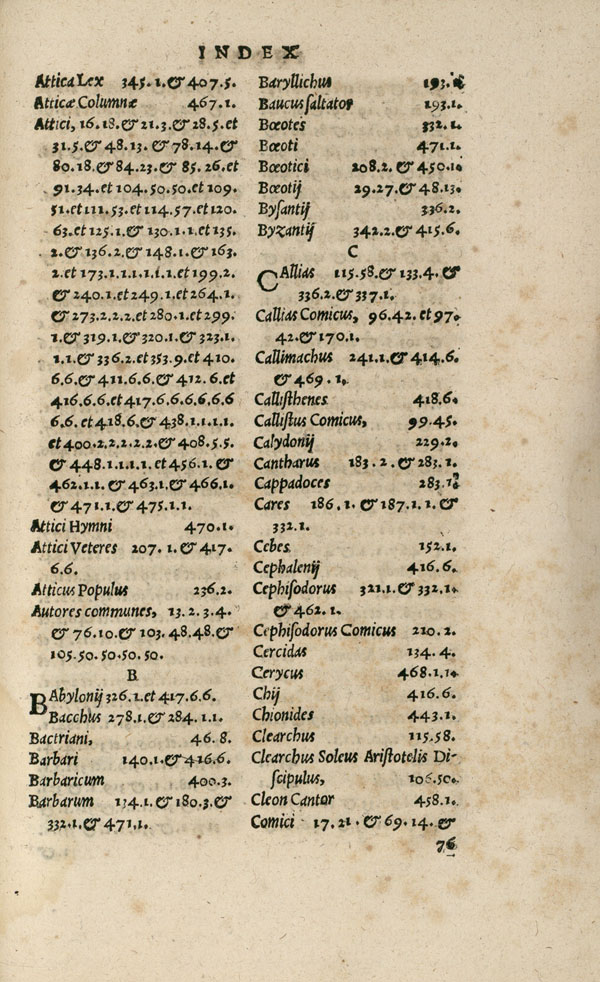 INDEX
Attica Lex 345.1.& 407.5.
Atticæ Columnæ 467.1.
Attici, 16.18.& 21.3.& 28.5.et
31.5.& 48.13. & 78.14.&
80.18.& 84.23.& 85.26.et
91.34.et 104.50.50.et 109.
51.et 111.53.et 114.57.et 120.
63.et 125.1.& 130.1.1.et 135.
2.& 136.2.& 148.1.& 163.
2.et 173.1.1.1.1.1.1.et 199.2.
& 240.1.et 249.1.et 264.1.
& 273.2.2.2.et 280.1.et 299.
1.& 319.1.& 320.1.& 323.1.
1.1.& 336.2.et 353.9.et 410.
6.6.& 411.6.6.& 412.6.et
416.6.6.et 417.6.6.6.6.6.6
6.6.et 418.6.& 438.1.1.1.1.
et 400.2.2.2.2.2.& 408.5.5.
& 448.1.1.1.1.et 456.1.&
462.1.1.& 463.1.& 466.1.
& 471.1.& 475.1.1.
Attici Hymni 470.1.
Attici Veteres 207.1.& 417.
6.6.
Atticus Populus 236.2.
Autores communes, 13.2.3.4.
& 76.10.& 103.48.48.&
105.50.50.50.50.
B
BAbylonij 326.1.et 417.6.6.
Bacchus 278.1.& 284.1.1.
Bactriani, 46.8.
Barbari 140.1.& 416.6.
Barbaricum 400.3.
Barbarum 134.1.& 180.3.&
332.1.& 471.1.
Baryllichus 193.
Baucus ſaltator 193.1.
Bœotes 332.1.
Bœoti 471.1.
Bœotici 208.2. & 450.1.
Bœotij 29.27.& 48.13.
Byſantij 336.2.
Byzantij 342.2.& 415.6.
C
CAllias 115.58.& 133.4.&
336.2.& 337.1.
Callias Comicus, 96.42. et 97.
42.& 170.1.
Callimachus 241.1.& 414.6.
& 469.1.
Calliſthenes 418.6.
Calliſtus Comicus, 99.45.
Calydonij 229.2.
Cantharus 183.2.& 283.1.
Cappadoces 283.1.
Cares 186.1.& 187.1.1.&
332.1.
Cebes 152.1.
Cephalenij 416.6.
Cephiſodorus 321.1.& 332.1.
& 462.1.
Cephiſodorus Comicus 210.2.
Cercidas 134.4.
Cerycus 468.1.1.
Chij 416.6.
Chionides 443.1.
Clearchus 115.58.
Clearchus Soleus Ariſtotelis Di-
ſcipulus, 106.50.
Cleon Cantor 458.1.
Comici 17.21.& 69.14.&
76